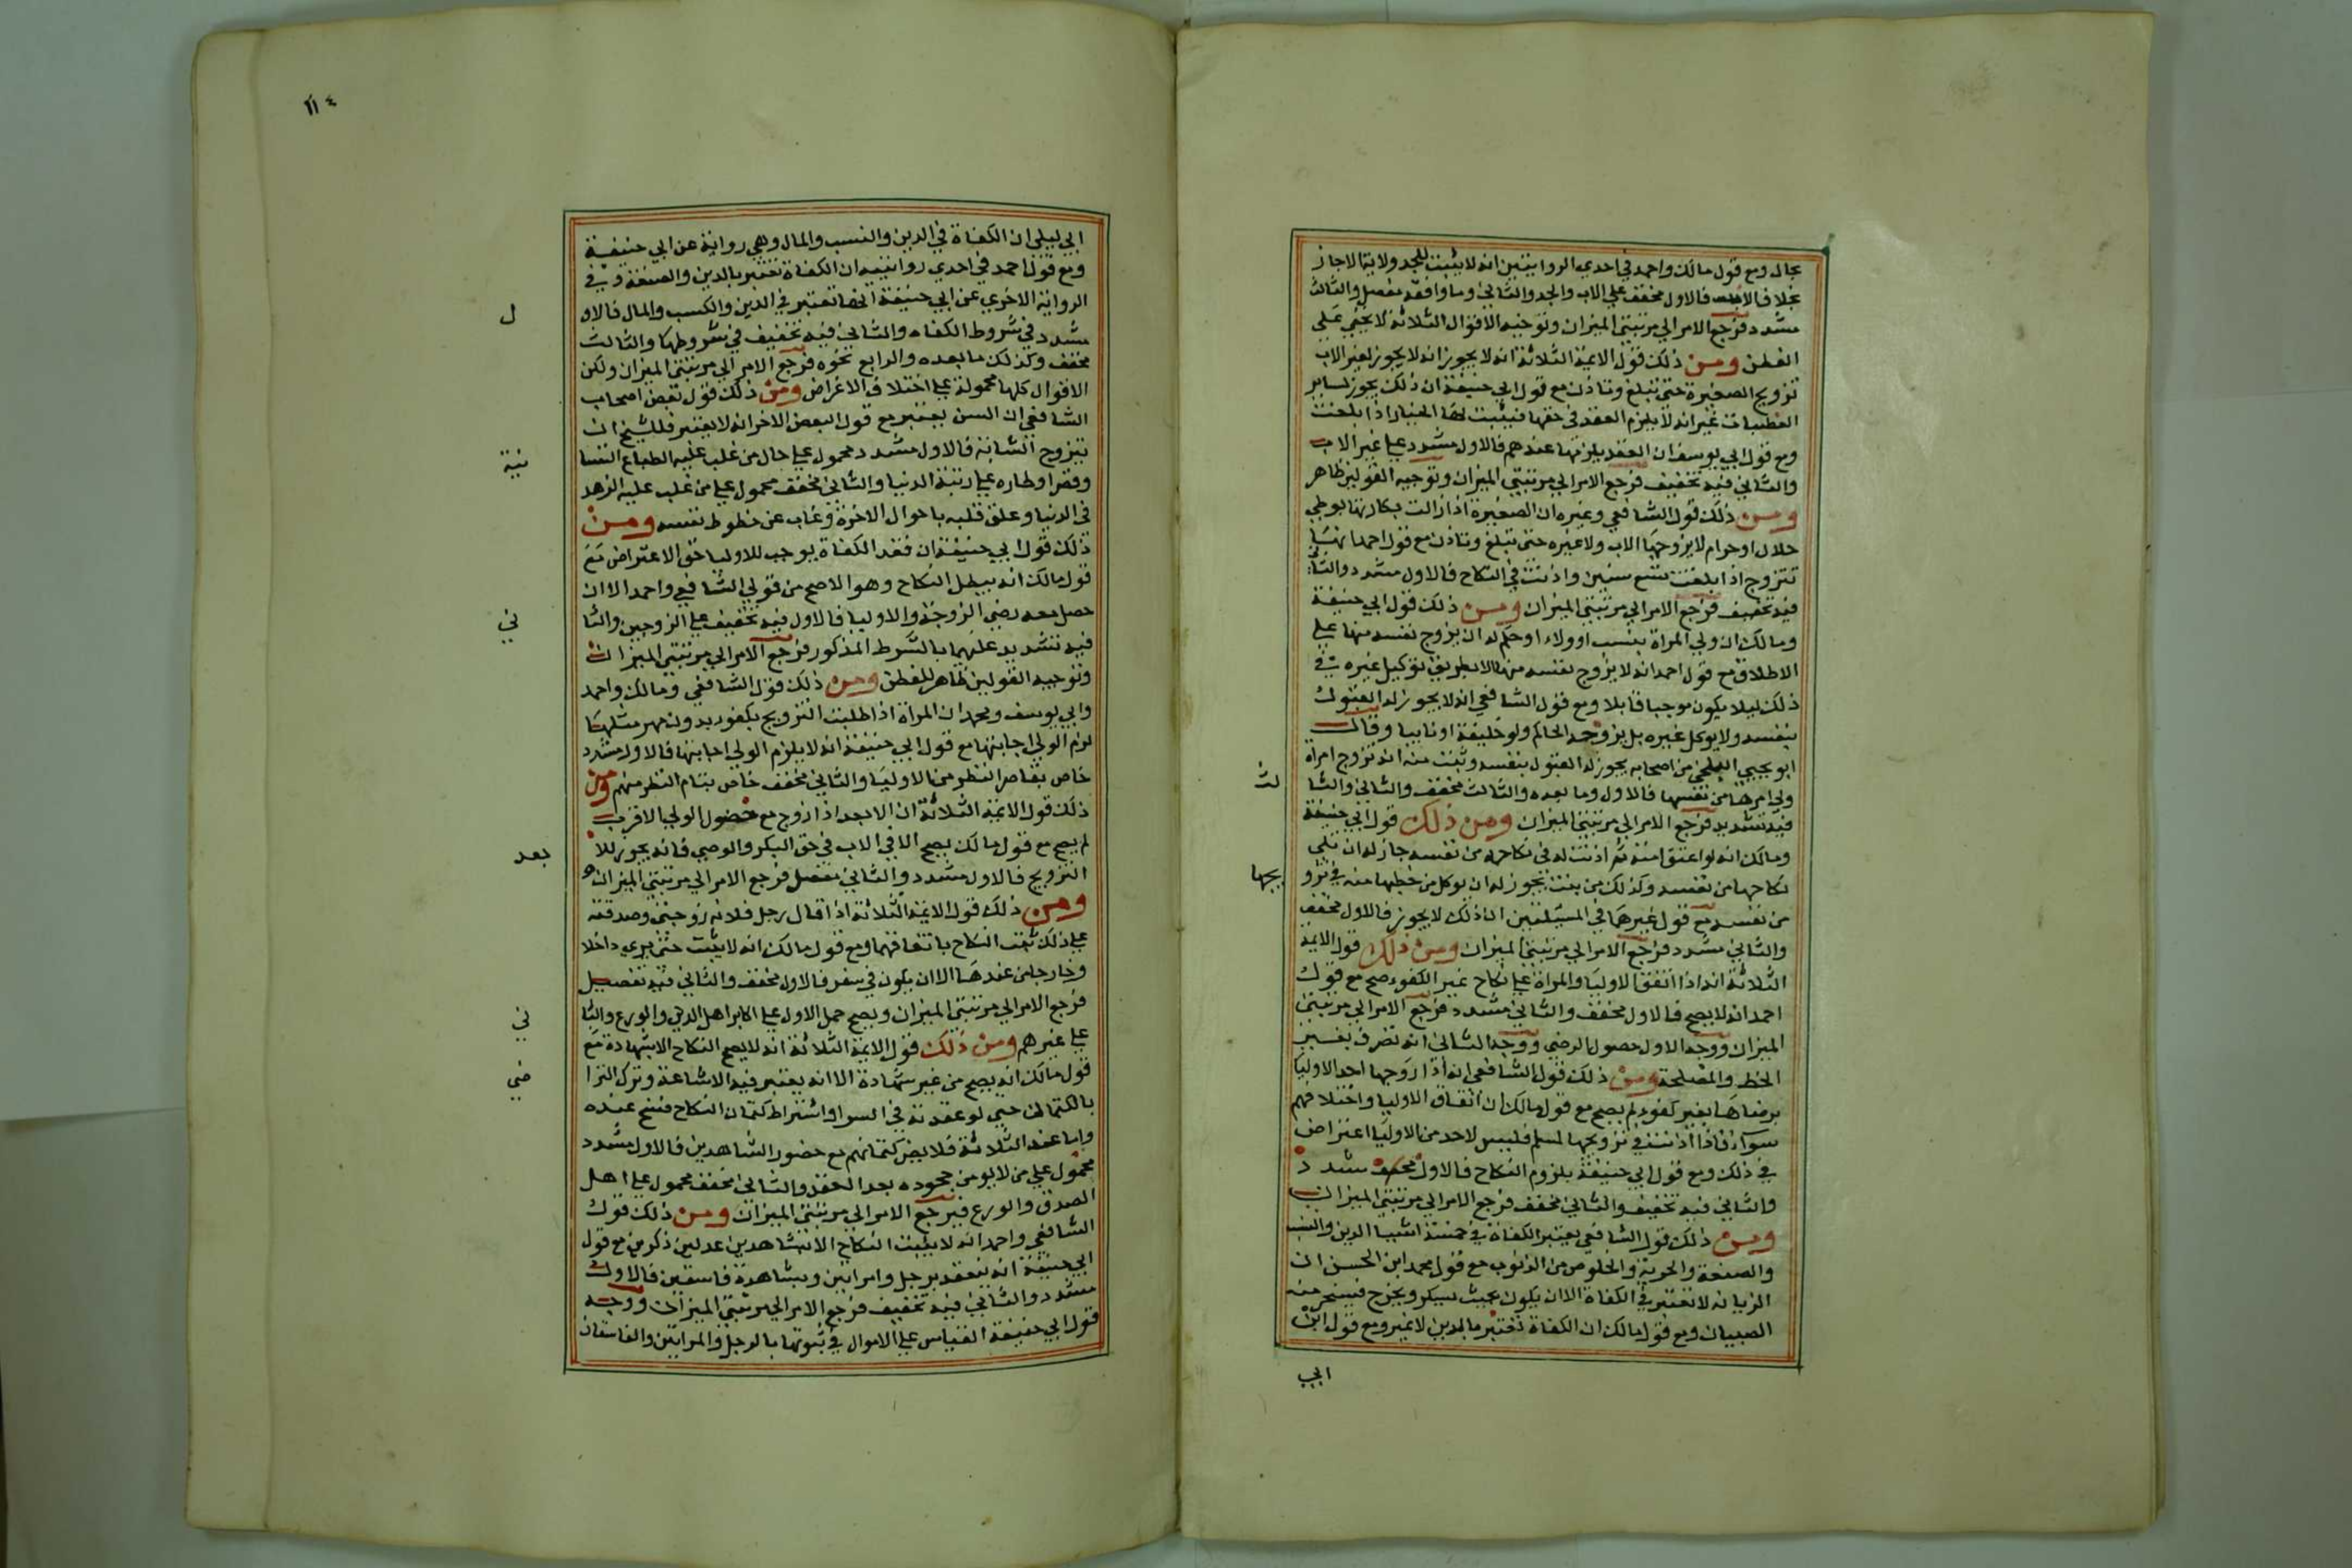 بحال ومع قول مالك واحمد في احدي الروايتين انه لا يثبت للجد ولاية الاجبار
بخلاف الاب فالاول مخفف علي الاب والجد والثاني وما وافقه مفصل والثالث
مشدد فرجع الامر الي مرتبتي الميزان وتوجيه الاقوال الثلاثة لا يخفي علي
الفطن ومن ذلك قول الايمة الثلاثة انه لا يجوز انه لا يجوز لغير الاب
تزويج الصغيرة حتي تبلغ وتاذن مع قول ابي حنيفة ان ذلك يجوز لساير
العصبات غير انه لا يلزم العقد في حقها فيثبت لها الخيار اذا بلغت
ومع قول ابي يوسف ان العقد يلزمها عندهم فالاول مشدد علي غير الاب
والثاني فيه تخفيف فرجع الامر الي مرتبتي الميزان وتوجيه القولين ظاهر
ومن ذلك قول الشافعي وغيره ان الصغيرة اذا زالت بكارتها بوطي
حلال او حرام لا يزوجها الاب ولا غيره حتي تبلغ وتاذن مع قول احمد انها
تتزوج اذا بلغت تسع سنين واذنت في النكاح فالاول مشدد والثاني
فيه تخفيف فرجع الامر الي مرتبتي الميزان ومن ذلك قول ابي حنيفة
ومالك ان ولي المراة بنسب او ولاء او حكم له ان يزوج نفسه منها علي
الاطلاق مع قول احمد انه لا يزوج نفسه منها الا بطريق توكيل غيره في
ذلك ليلا يكون موجبا قابلا ومع قول الشافعي انه لا يجوز له القبول
بنفسه ولا يوكل غيره بل يزوجه الحاكم ولو خليفة او نايبا وقال
ابو يحيي البلخي من اصحابه يجوز له القبول بنفسه وثبت منه انه تزوج امراة
ولي امرها من نفسها فالاول وما بعده والثالث مخفف والثاني والثا
لث
فيه تشديد فرجع الامر الي مرتبتي الميزان ومن ذلك قول ابي حنيفة
ومالك انه لو اعتق امته ثم اذنت له في نكاحها من نفسه جاز له ان يلي
نكاحها من نفسه وكذلك من بنت يجوز له ان يوكل من خطبها منه في تزو
يجها
من نفسه مع قول غيرهما في المسيلتين ان ذلك لا يجوز فالاول مخفف
والثاني مشدد فرجع الامر الي مرتبتي الميزان ومن ذلك قول الايمة
الثلاثة انه اذا اتفق الاوليا والمراة علي نكاح غير الكفو صح مع قول
احمد انه لا يصح فالاول مخفف والثاني مشدد فرجع الامر الي مرتبتي
الميزان ووجه الاول حصول الرضي ووجه الثاني انه تصرف بغير
الحظ والمصلحة ومن ذلك قول الشافعي انه اذا زوجها احد الاوليا
برضاها بغير كفو لم يصح مع قول مالك ان اتفاق الاوليا واختلافهم
سواء فاذا اذنت في تزويجها لمسلم فليس لاحد من الاوليا اعتراض
في ذلك ومع قول ابي حنيفة يلزوم النكاح فالاول مخفف مشدد
والثاني فيه تخفيف والثاني مخفف فرجع الامر الي مرتبتي الميزان
ومن ذلك قول الشافعي يعتبر الكفاة في خمسة اشيا الدين والنسب
والصنعة والحرية والخلوص من الذنوب مع قول محمد ابن الحسن ان
الزيانة لا تعتبر في الكفاة الا ان يكون بحيث يسكر ويخرج فيسخر منه
الصبيان ومع قول مالك ان الكفاة تختبر ما لدين لا غير ومع قول ابن
ابي
١١٤
ابي ليلي ان الكفاة في الدين والنسب والمال وهي رواية عن ابي حنيفة
ومع قول احمد في احدي روايتيه ان الكفاة تعتبر بالدين والصنعة وفي
الرواية الاخري عن ابي حنيفة انها تعتبر في الدين والكسب والمال فالاو
ل
مشدد في شروط الكفاه والثاني فيه تخفيف في شروطها والثالث
مخفف وكذلك ما بعده والرابع نحوه فرجع الامر الي مرتبتي الميزان ولكن
الاقوال كلها محمولة علي اختلاف الاغراض ومن ذلك قول بعض اصحاب
الشافعي ان السن يعتبر مع قول البعض الاخر انه لا يعتبر فللشيخ ان
يتزوج الشابة فالاول مشدد محمول علي حال من غلب عليه الطباع النفسا
نية
وقصر اوطاره علي رتبة الدنيا والثاني مخفف محمول علي من غلب عليه الزهد
في الدنيا وعلق قلبه باحوال الاخرة وغاب عن حظوظ نفسه ومن
ذلك قول ابي حنيفة ان فقد الكفاة يوجب للاوليا حق الاعتراض مع
قول مالك انه يبطل النكاح وهو الاصح من قولي الشافعي واحمد الا ان
حصل معه رضي الزوجة والاوليا فالاول فيه تخفيف علي الزوجين والثا
ني
فيه تشديد عليهما بالشرط المذكور فرجع الامر الي مرتبتي الميزان
وتوجيه القولين ظاهر للفطن ومن ذلك قول الشافعي ومالك واحمد
وابي يوسف ومحمد ان المراة اذا طلبت التزويج بكفو بدون مهر مثلها
لزم الولي اجابتها مع قول ابي حنيفة انه لا يلزم الولي اجابتها فالاول مشدد
خاص بقاصر النظر من الاوليا والثاني مخفف خاص بتام النظر منهم ومن
ذلك قول الايمة الثلاثة ان الابعد اذا زوج مع حضول الولي الاقرب
لم يصح مع قول مالك يصح الا في الاب في حق البكر والوصي فانه يجوز للا
بعد
التزويج فالاول مشدد والثاني مفصل فرجع الامر الي مرتبتي الميزان
ومن ذلك قول الايمة الثلاثة اذا قال رجل فلانه زوجتي وصدقته
علي ذلك ثبت النكاح باتفاقهما ومع قول مالك انه لا يثبت حتي يري داخلا
وخارجا من عندها الا ان يكون في سفر فالاول مخفف والثاني فيه تفصيل
فرجع الامر الي مرتبتي الميزان ويصح حمل الاول علي اكابر اهل الدين والورع والثا
ني
علي غيرهم ومن ذلك قول الايمة الثلاثة انه لا يصح النكاح الا بشهادة مع
قول مالك انه يصح من غير شهادة الا انه يعتبر فيه الاشاعة وترك الترا
ضي
بالكتمان حتي لو عقده في السر واشتراط كتمان النكاح فسخ عنده
واما عند الثلاثة فلا يضر كتمانهم مع حضور الشاهدين فالاول مشدد
محمول علي من لا يومن جحوده بعد العقد والثاني مخفف محمول علي اهل
الصدق والورع فيرجع الامر الي مرتبتي الميزان ومن ذلك قول
الشافعي واحمد انه لا يثبت النكاح الا بشاهدين عدلين ذكرين مع قول
ابي حنيفة انه ينعقد برجل وامراتين وبشاهدة فاسقين فالاول
مشدد والثاني فيه تخفيف فرجع الامر الي مرتبتي الميزان ووجه
قول ابي حنيفة القياس علي الاموال في ثبوتها بالرجل والمراتين والفاسقان